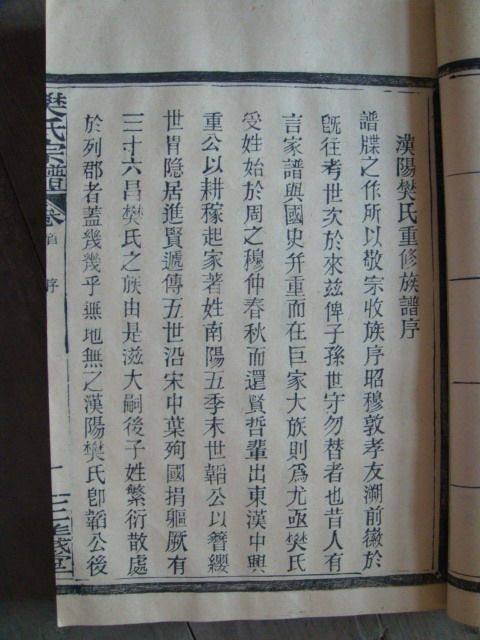 漢陽樊氏重修族譜序
譜牒之作所以敬宗收族序昭穆敦孝友溯前徽於
旣往考世次於來茲俾子孫世守勿替者也昔人有
言家譜與國史幷重而在巨家大族則爲尤亟樊氏
受姓始於周之穆仲春秋而還賢哲輩出東漢中興
重公以耕稼起家著姓南陽五季末世韜公以簪纓
世胄隐居進賢遞傳五世沿宋中葉殉國捐軀厥有
三十六昌樊氏之族由是滋大嗣後子姓繁衍散處
於列郡者蓋幾幾乎無地無之漢陽樊氏卽韜公後
樊氏宗譜 卷首 序
一